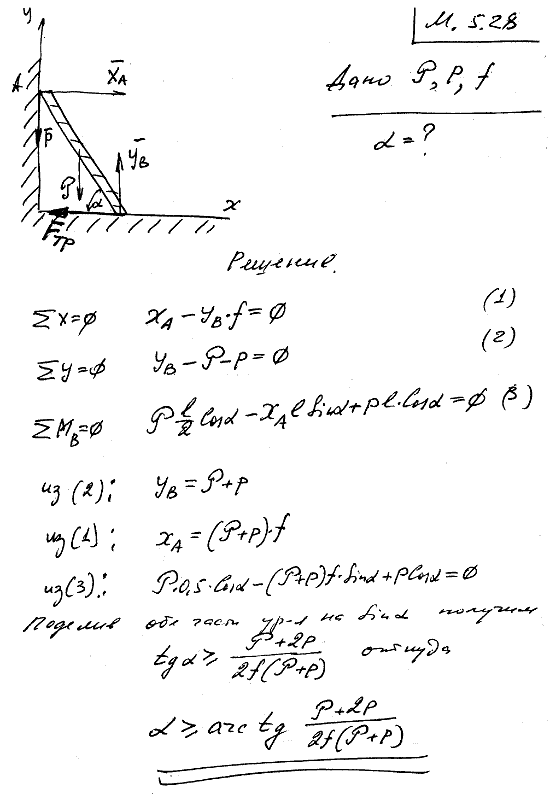 М. 5.28
Дано P, p, f
α = ?
y
A
X̄_A
p̄
P
Ȳ_B
α
x
F_тр
Решение.
Σx=0 x_A − y_B·f = 0 (1)
Σy=0 y_B − P − p = 0 (2)
ΣM_B=0 P l/2 cosα − x_A l sinα + p l·cosα = 0 (3)
из (2): y_B = P+p
из (1): x_A = (P+p)·f
из (3): P·0,5·cosα − (P+p)f·sinα + p cosα = 0
Поделив обе части ур-я на sinα получим
tg α ≥ (P+2p)/(2f(P+p)) откуда
α ≥ arctg (P+2p)/(2f(P+p))